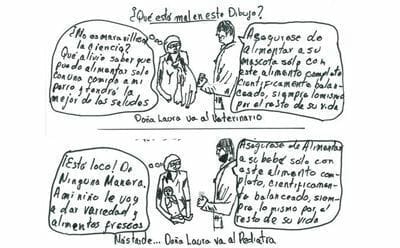 ¿Qué está mal en este Dibujo?
¿No es maravillosa
la ciencia?
Qué alivio saber que
puedo alimentar solo
con una comida a mi
perro y tendrá la
mejor de las saludes
Asegúrese de
alimentar a su
mascota sólo con
este alimento completo
científicamente balan-
ceado, siempre lo mismo
por el resto de su vida
Doña Laura va al Veterinario
¡Está loco! De
Ninguna Manera.
A mi niño le voy
a dar variedad y
alimentos frescos
Asegúrese de Alimentar
a su bebé solo con
este alimento com-
pleto, científicamen-
te balanceado, siem-
pre lo mismo por el
resto de su vida
Más tarde... Doña Laura va al Pediatra